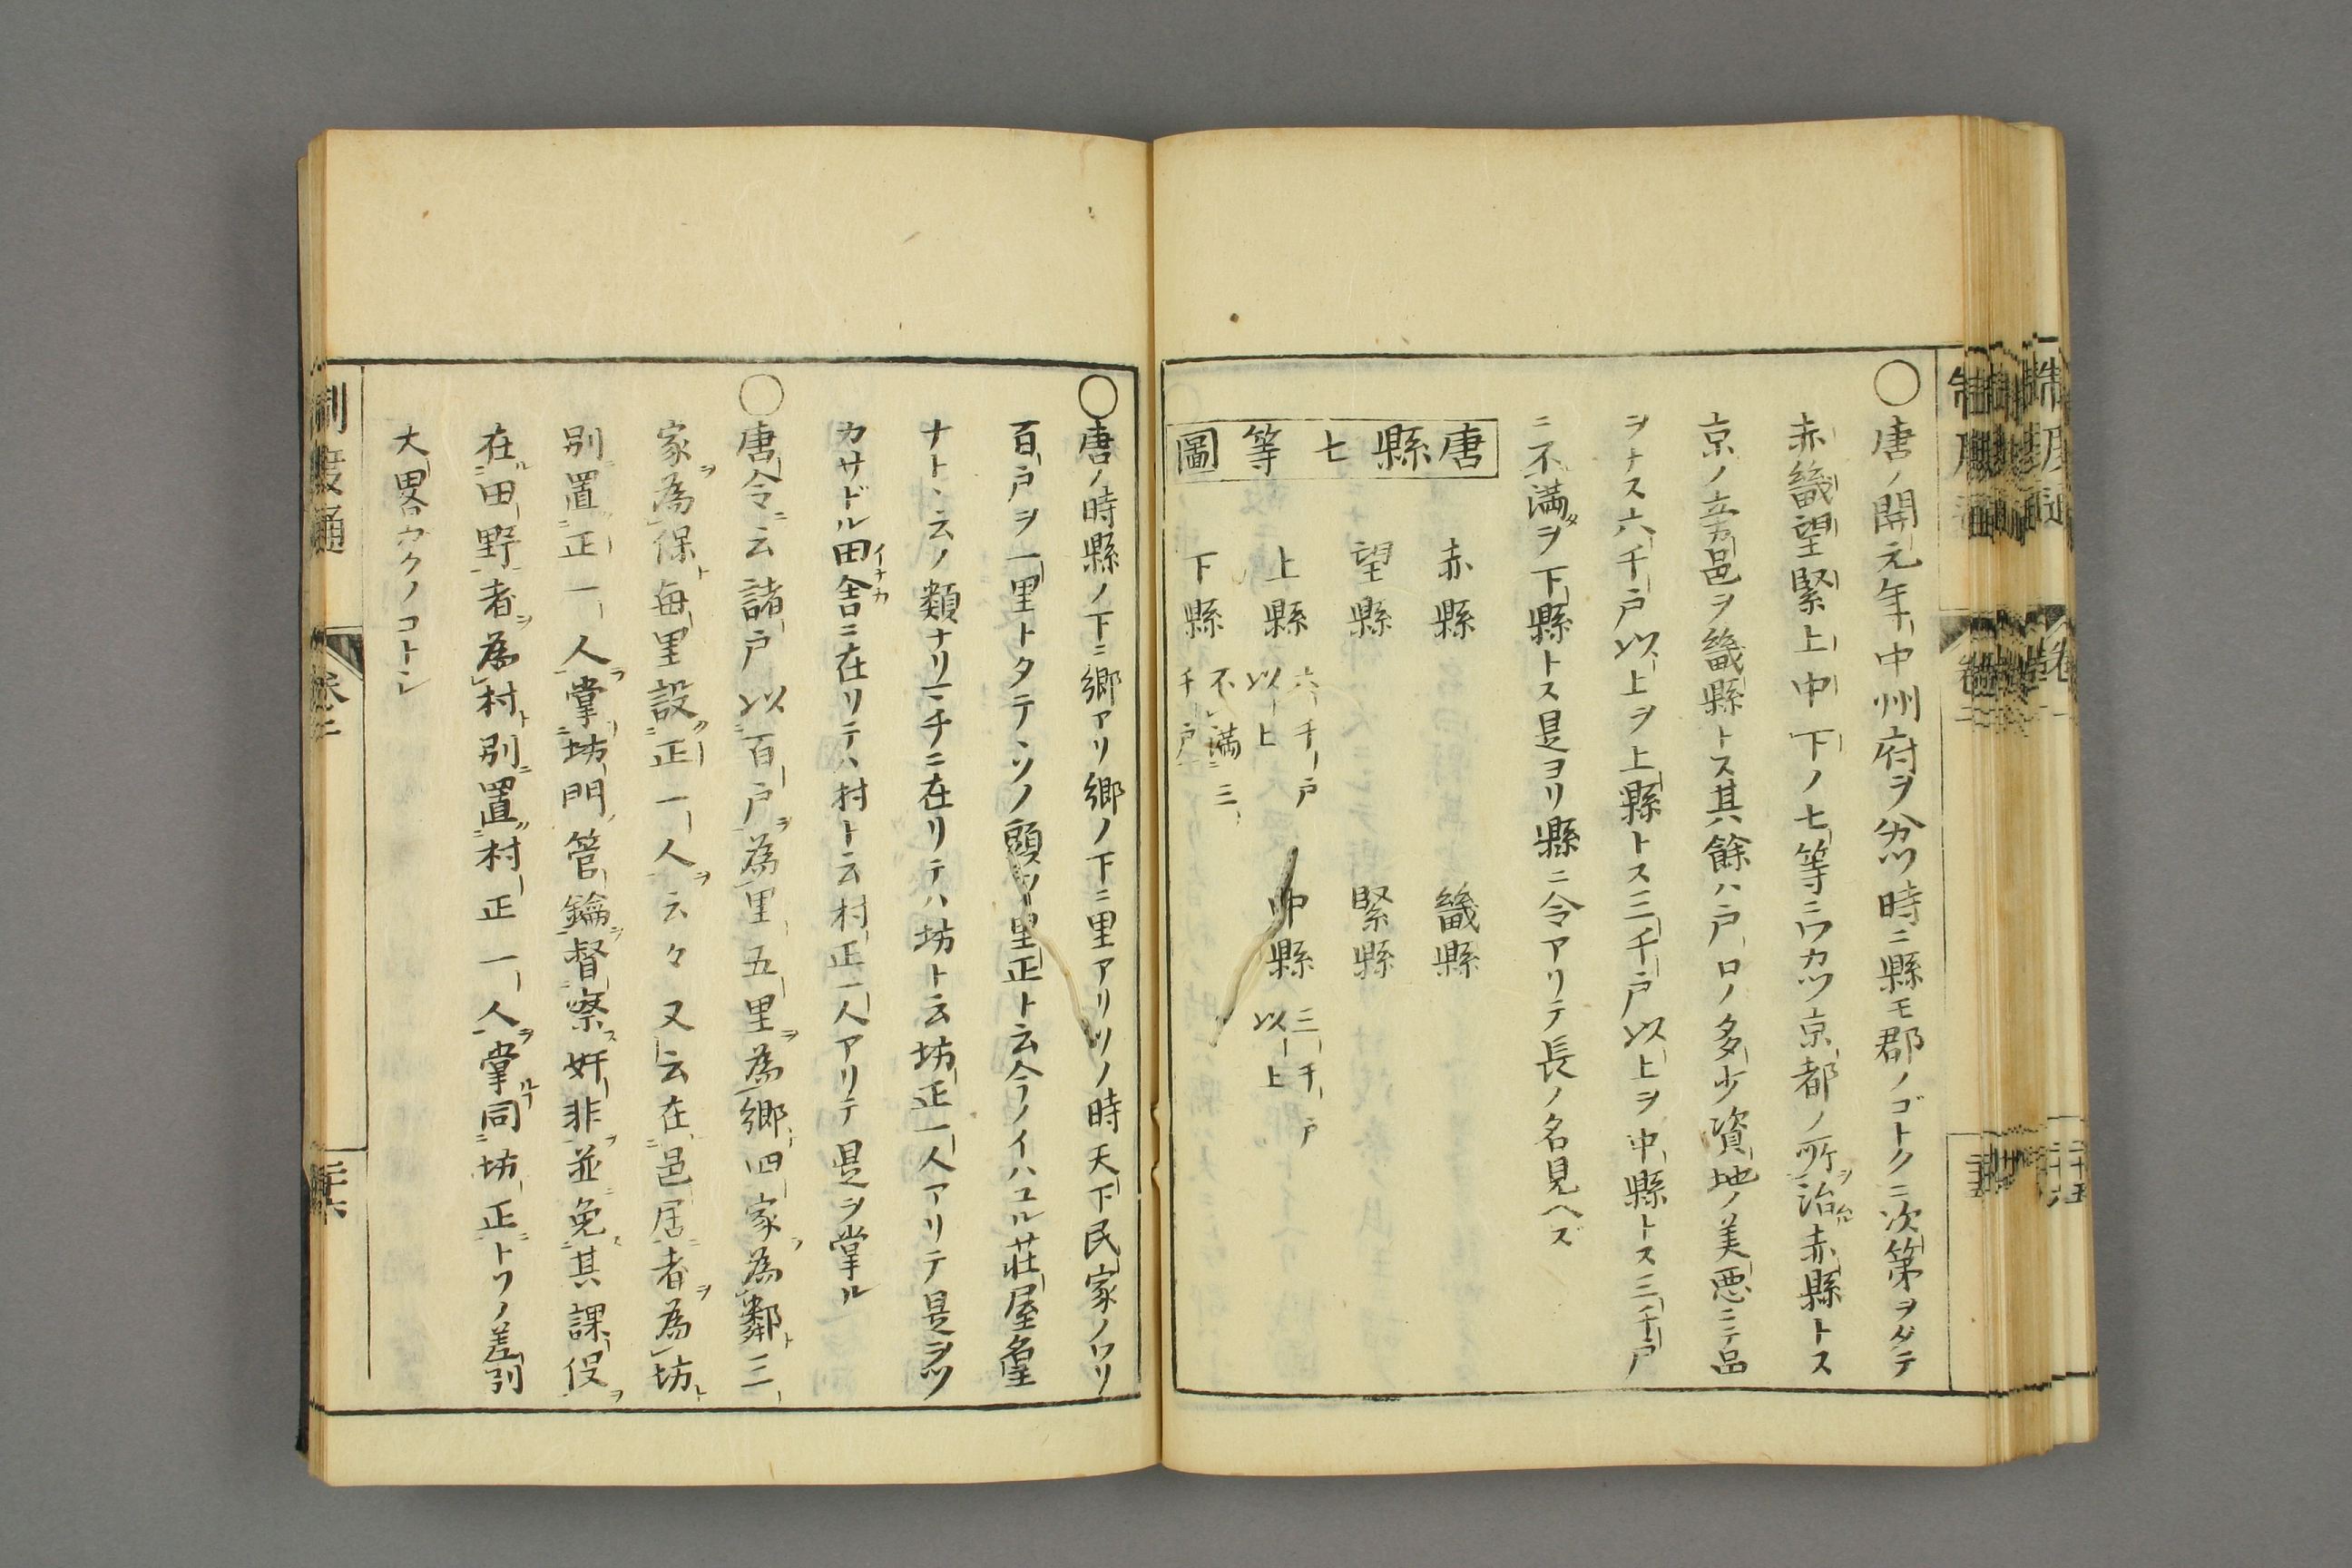 〇唐ノ開元年中州府ヲ分ツ時ニ縣モ郡ノゴトクニ次第ヲタテ
赤畿望緊上中下ノ七等ニワカツ京都ノ所治ヲ赤縣トス
京ノ旁邑ヲ畿縣トス其餘ハ戸口ノ多少資地ノ美悪ニテ品
ヲナス六千戸以上ヲ上縣トス三千戸以上ヲ中縣トス三千戸
ニ不満ヲ下縣トス是ヨリ縣ニ令アリテ長ノ名見ヘズ
唐縣七等圖
赤縣 畿縣
望縣 緊縣
上縣 六千戸以上 中縣 三千戸以上
下縣 不満三千戸
〇唐ノ時縣ノ下ニ郷アリ郷ノ下ニ里アリソノ時天下民家ノワリ
百戸ヲ一里トタテソノ頭ヲ里正ト云今ノイハユル荘屋名主
ナト云ノ類ナリマチニ在リテハ坊ト云坊正一人アリテ是ヲツ
カサドル田舎ニ在リテハ村ト云村正一人アリテ是ヲ掌ル
イナカ
〇唐令云諸戸以百戸為里五里為郷四家為鄰三
家為保毎里設正一人云々又云在邑居者為坊
別置正一人掌坊門管鑰督察奸非並免其課役
在田野者為村別置村正一人掌同坊正トソノ差別
大畧カクノコトシ
制度通 巻二 二十六